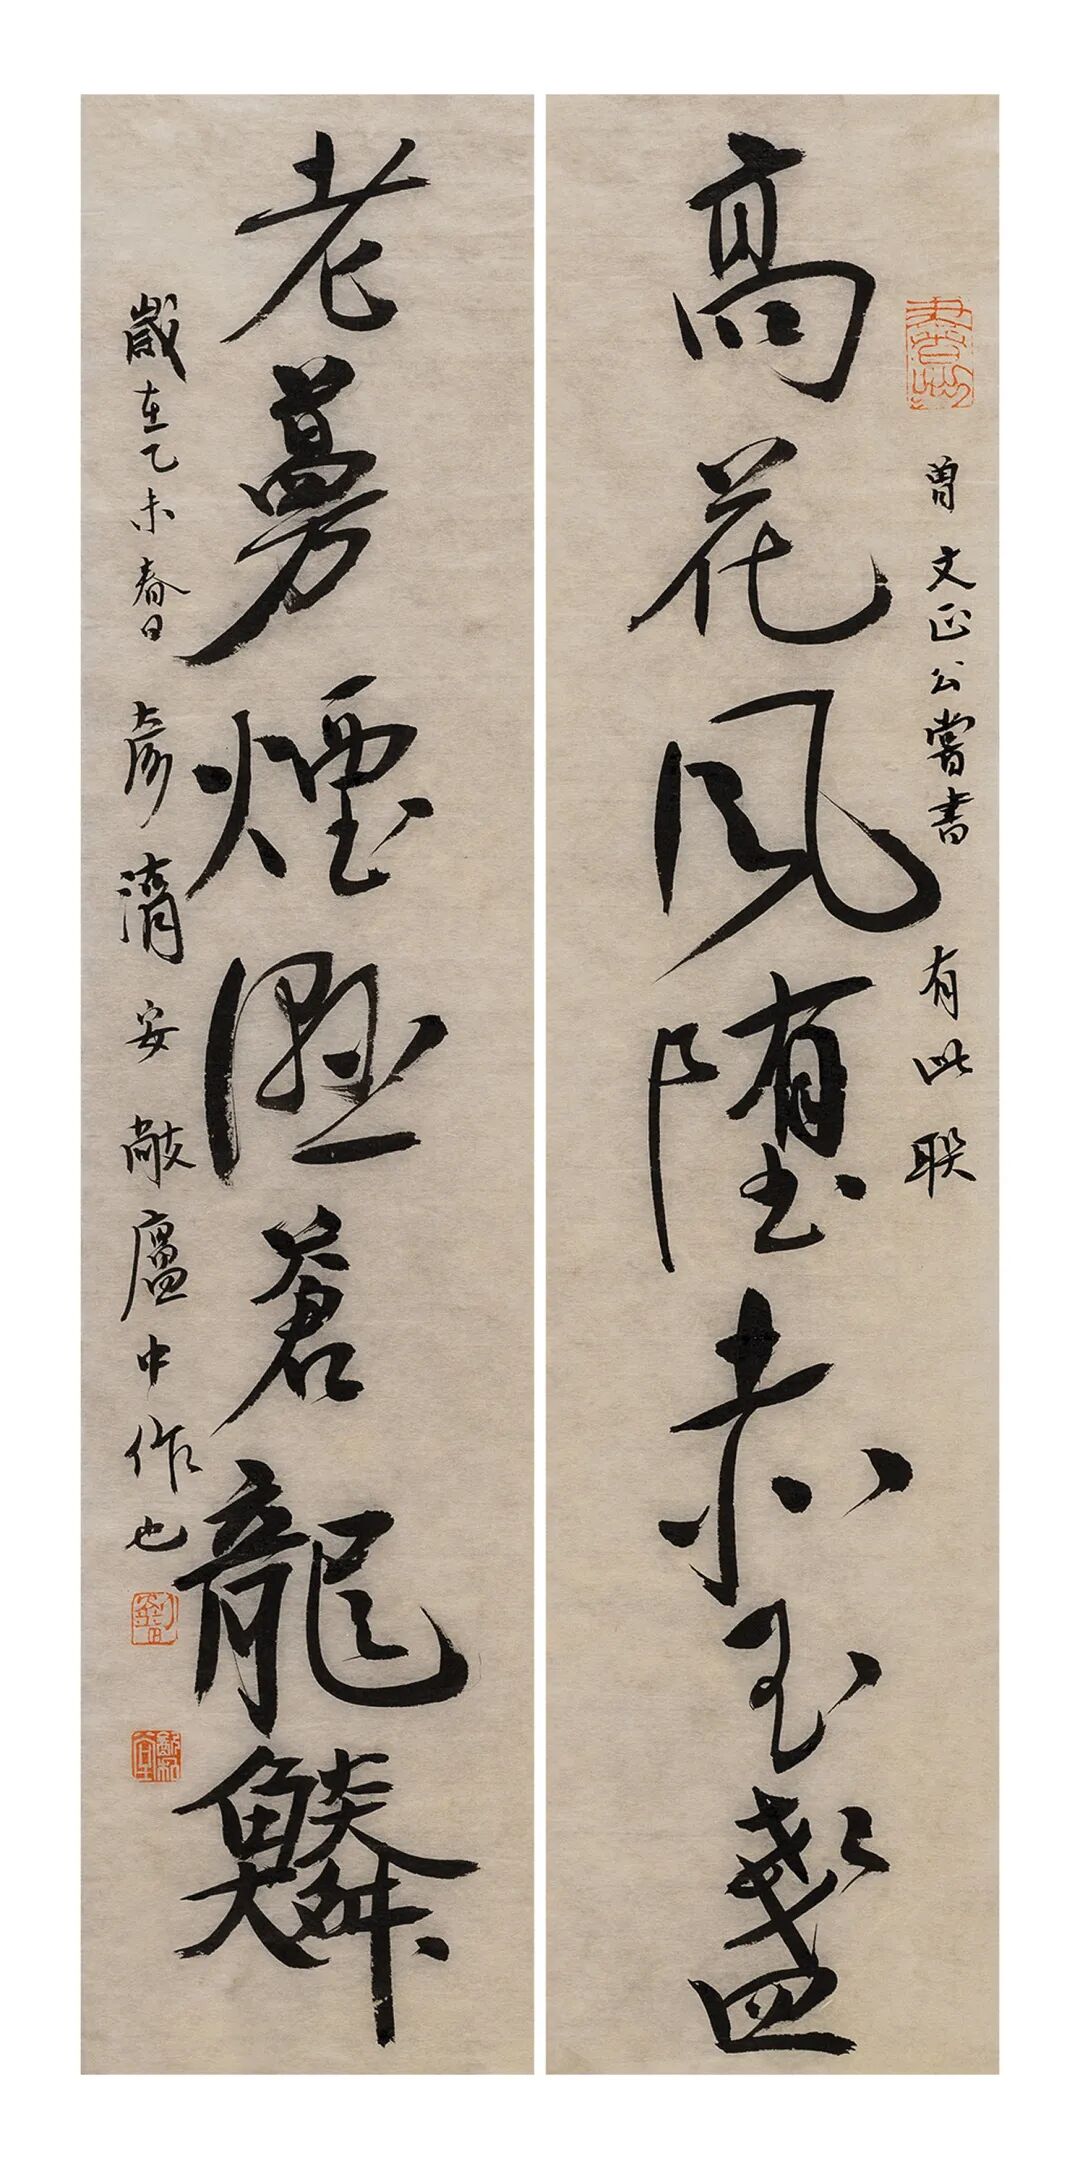 高花風墮赤玉盞
曾文正公嘗書有此聯
老蔓煙濕蒼龍鱗
歲在乙未春日彥湖安敞廬中作也